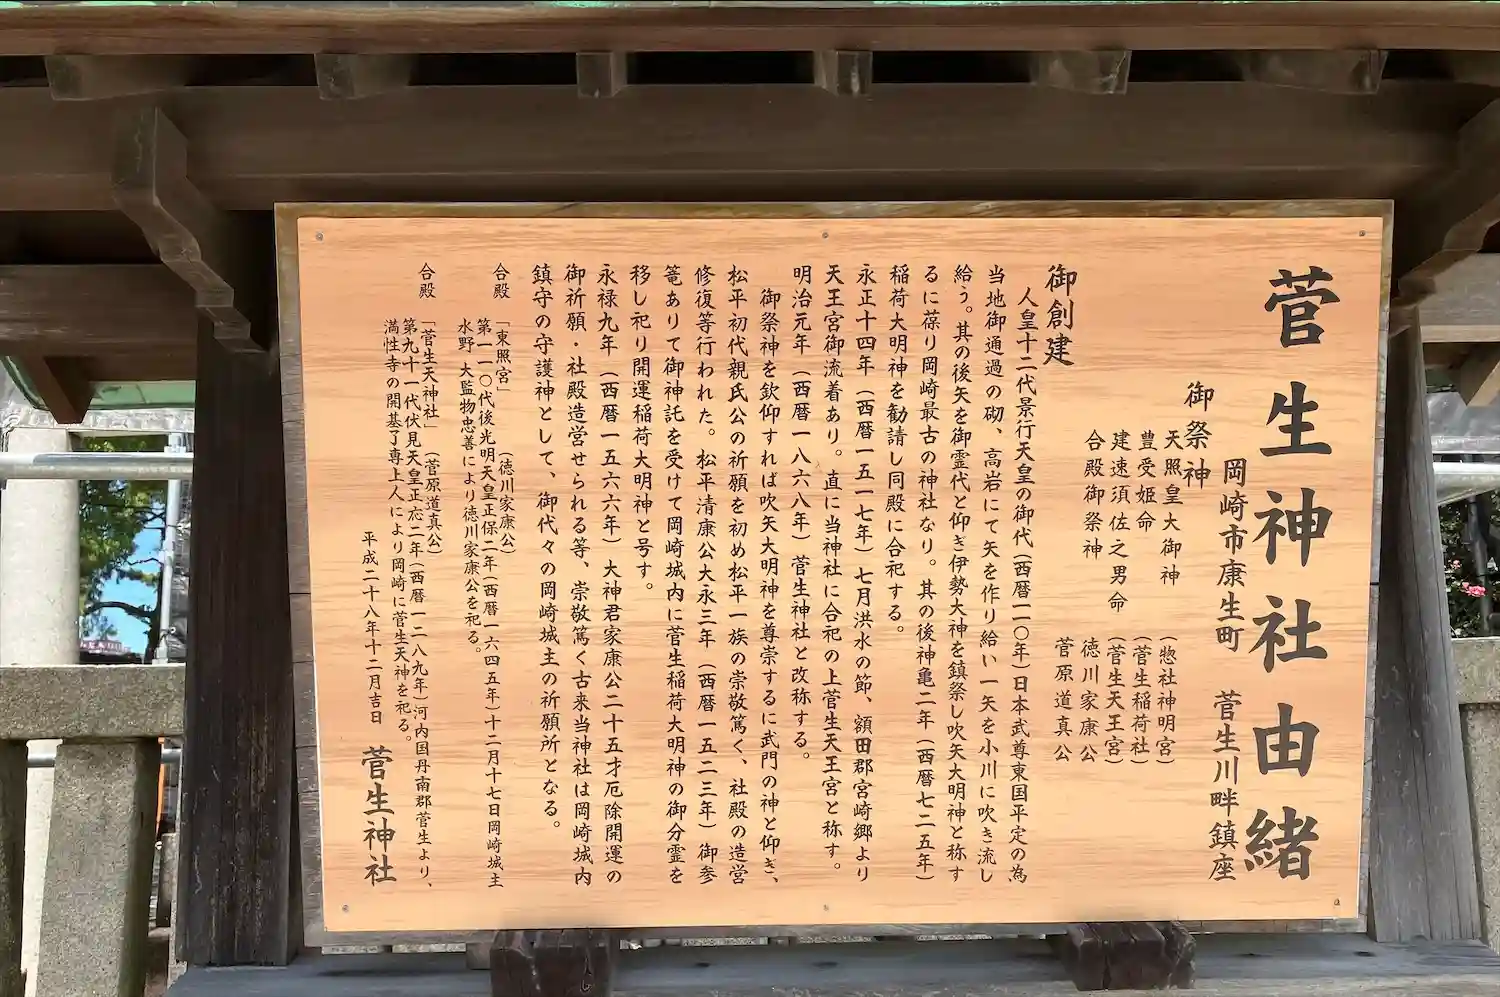 菅生神社由緒
岡崎市康生町　菅生川畔鎮座
御祭神
天照皇大御神　（惣社神明宮）
豊受姫命　（菅生稲荷社）
建速須佐之男命　（菅生天王宮）
合殿御祭神　徳川家康公
菅原道真公
御創建
人皇十二代景行天皇の御代（西暦一一〇年）日本武尊東国平定の為
当地御通過の砌、高岩にて矢を作り給い一矢を小川に吹き流し
給う。其の後矢を御霊代と仰ぎ伊勢大神を鎮祭し吹矢大明神と称す
るに葆り岡崎最古の神社なり。其の後神亀二年（西暦七二五年）
稲荷大明神を勧請し同殿に合祀する。
永正十四年（西暦一五一七年）七月洪水の節、額田郡宮崎郷より
天王宮御流着あり。直に当神社に合祀の上菅生天王宮と称す。
明治元年（西暦一八六八年）菅生神社と改称する。
御祭神を欽仰すれば吹矢大明神を尊崇するに武門の神と仰ぎ、
松平初代親氏公の祈願を初め松平一族の崇敬篤く、社殿の造営
修復等行われた。松平清康公大永三年（西暦一五二三年）御参
篭ありて御神託を受けて岡崎城内に菅生稲荷大明神の御分霊を
移し祀り開運稲荷大明神と号す。
永禄九年（西暦一五六六年）大神君家康公二十五才厄除開運の
御祈願・社殿造営せられる等、崇敬篤く古来当神社は岡崎城内
鎮守の守護神として、御代々の岡崎城主の祈願所となる。
合殿　「東照宮」（徳川家康公）
第一一〇代後光明天皇正保二年（西暦一六四五年）十二月十七日岡崎城主
水野大監物忠善により徳川家康公を祀る。
合殿　「菅生天神社」（菅原道真公）
第九十一代伏見天皇正応二年（西暦一二八九年）河内国丹南郡菅生より、
満性寺の開基了専上人により岡崎に菅生天神を祀る。
平成二十八年十二月吉日　菅生神社